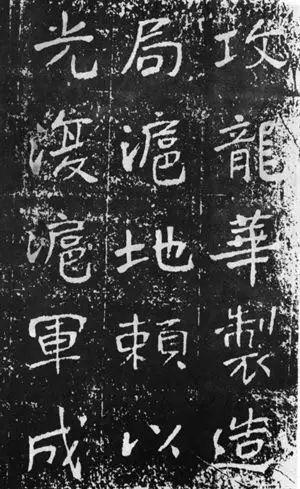 攻龍華製造
局滬地頼以
光復滬軍成